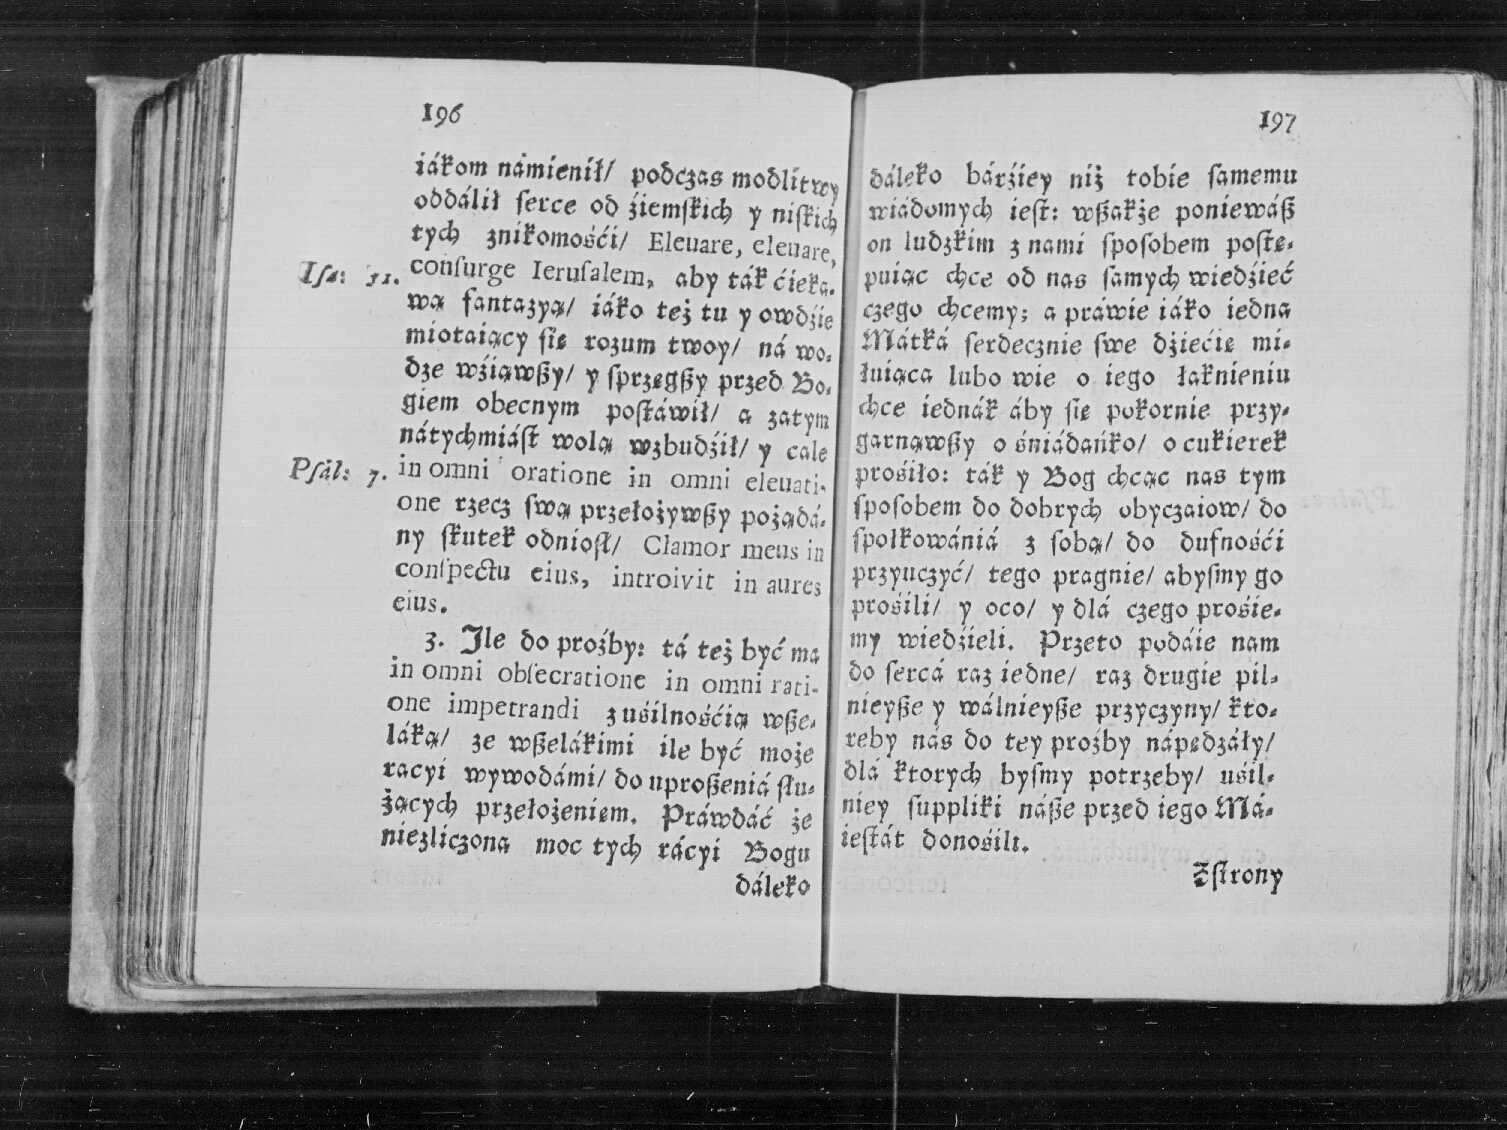 196
iákom námienił/ podczas modlitwy
oddálił serce od źiemſkich y niſkich
tych znikomośći/ Eleuare, eleuare,
Iſa: 31. conſurge Ieruſalem, aby ták ćieka-
wą fantazyą/ iáko też tu y owdźie
miotaiący ſię rozum twoy/ ná wo-
dze wźiąwßy/ y ſprzęgßy przed Bo-
giem obecnym poſtáwił/ a zatym
nátychmiáſt wolą wzbudźił/ y cale
Pſál: 7. in omni oratione in omni eleuati-
one rzecz ſwą przełożywßy pożądá-
ny ſkutek odnioſł/ Clamor meus in
conſpectu eius, introivit in aures
eius.
3. Ile do proźby: tá też być ma
in omni obſecratione in omni rati-
one impetrandi z uśilnośćią wße-
láką/ ze wßelákimi ile być może
racyi wywodámi/ do uproßeniá ſłu-
żących przełożeniem. Práwdáć że
niezliczona moc tych rácyi Bogu
dáleko
197
dáleko bárźiey niż tobie samemu
wiádomych ieſt: wßakże poniewáß
on ludzkim z nami ſpoſobem poſtę-
puiąc chce od nas ſamych wiedźieć
czego chcemy; a práwie iáko iedna
Mátká ſerdecznie ſwe dźiećię mi-
łuiąca lubo wie o iego łaknieniu
chce iednák áby ſię pokornie przy-
garnąwßy o śniádańko/ o cukierek
prośiło: ták y Bog chcąc nas tym
ſpoſobem do dobrych obyczaiow/ do
ſpołkowániá z ſobą/ do dufnośći
przyuczyć/ tego pragnie/ abyſmy go
prośili/ y oco/ y dlá czego prośie-
my wiedźieli. Przeto podáie nam
do ſercá raz iedne/ raz drugie pil-
nieyße y wálnieyße przyczyny/ kto-
reby nás do tey proźby nápędzáły/
dlá ktorych byſmy potrzeby/ uśil-
niey ſuppliki náße przed iego Má-
ieſtát donośili.
Zſtrony